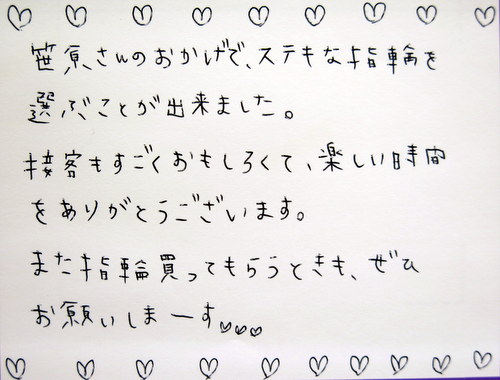 笹原さんのおかげで、ステキな指輪を
選ぶことが出来ました。
接客もすごくおもしろくて、楽しい時間
をありがとうございます。
また指輪買ってもらうときも、ぜひ
お願いしまーす♡♡♡